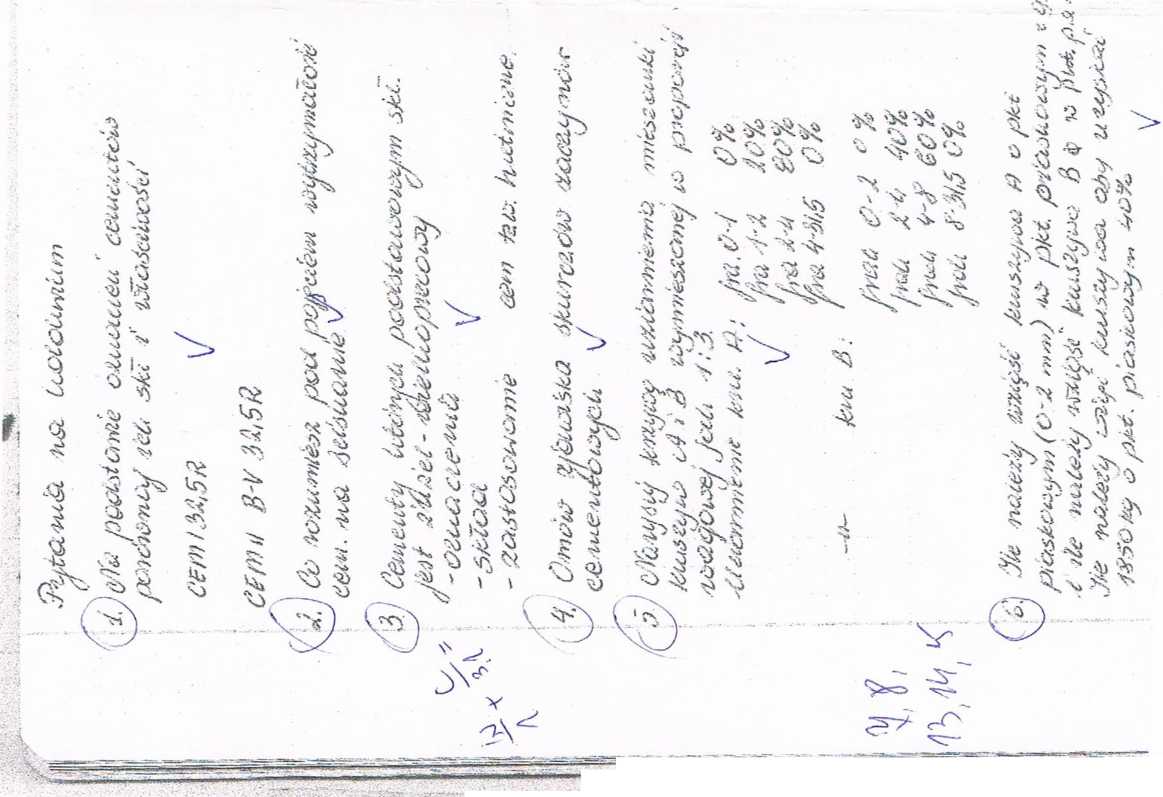 Pytania na kolokwium
1. Na podstawie oznaczeń cementów
porównaj ich skł i właściwości
CEM I 32,5R
CEM II B-V 32,5R
2. Co rozumiesz pod pojęciem wytrzymałość
cem. na ściskanie
3. Cementy których podstawowym skł.
jest żużel wielkopiecowy
- oznaczenia
- skład
- zastosowanie cem tzw. hutnicze.
4. Omów zjawiska skurczów zaczynów
cementowych
5 Narysuj krzywą uziarnienia mieszanki
kruszyw A i B wymieszanej w proporcji
wagowej 1:3
Uziarnienie kru. A: fra. 0-1 0%
fra 1-2 20%
fra 2-4 80%
fra 4-31,5 0%
-"- kru B: frak 0-2 0%
frak 2-4 40%
frak 4-8 60%
frak 8-31,5 0%
6. Ile należy wziąść kruszywa A o pkt
piaskowym (0-2 mm) w pkt. piaskowym
i ile należy wziąść kruszywa B o w pkt. p.
Ile należy kruszywa aby uzyskać
1850 kg o pkt. piaskowym 40%
8,
13, 14, 5